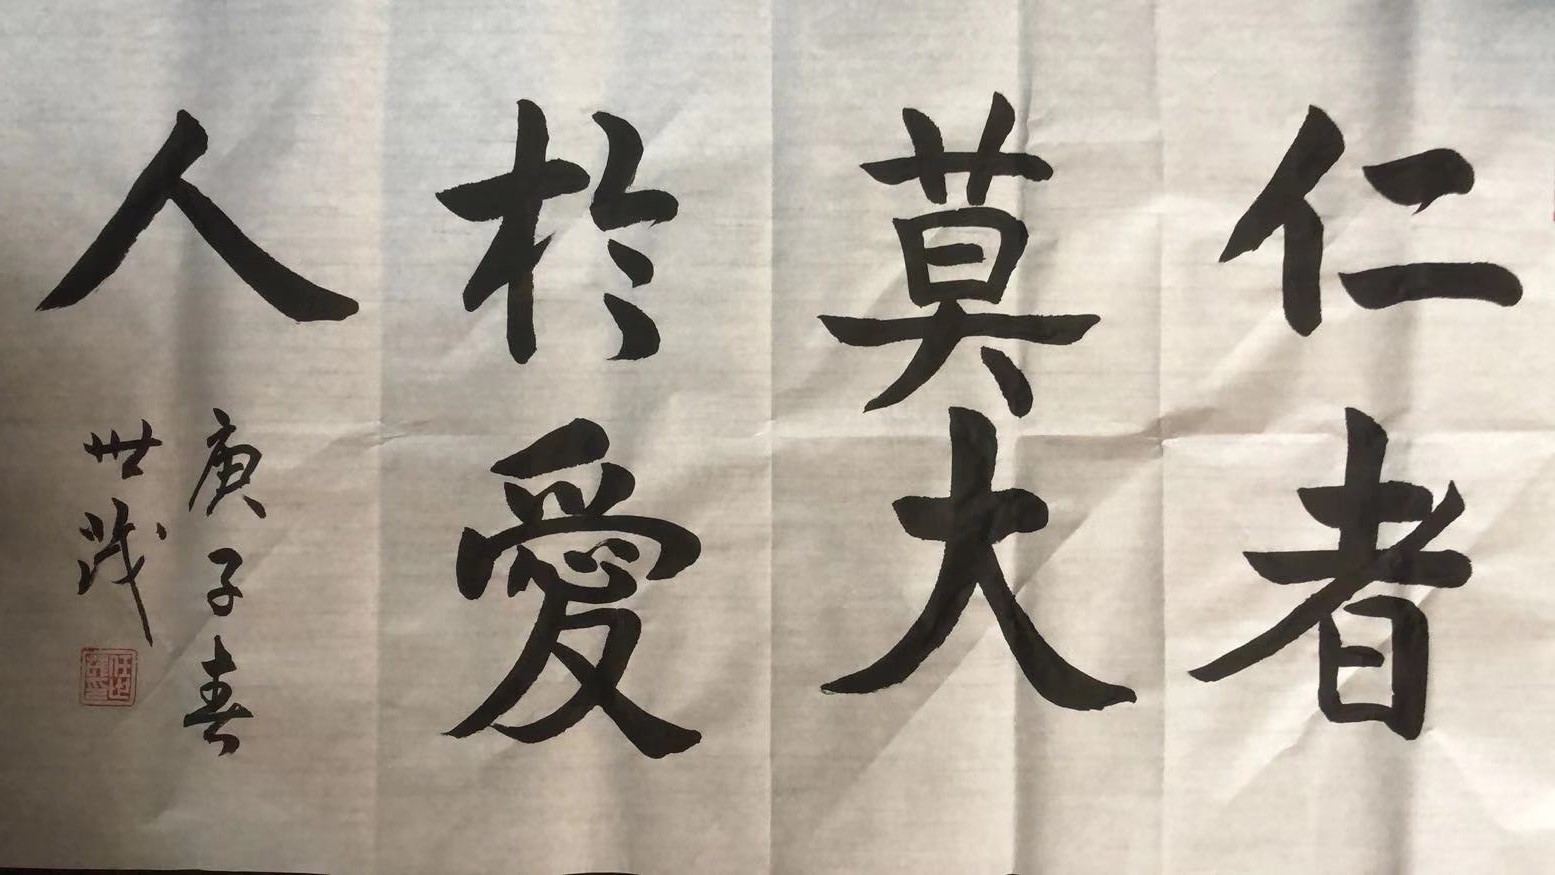 仁者
莫大
於愛
人
庚子春
世茂